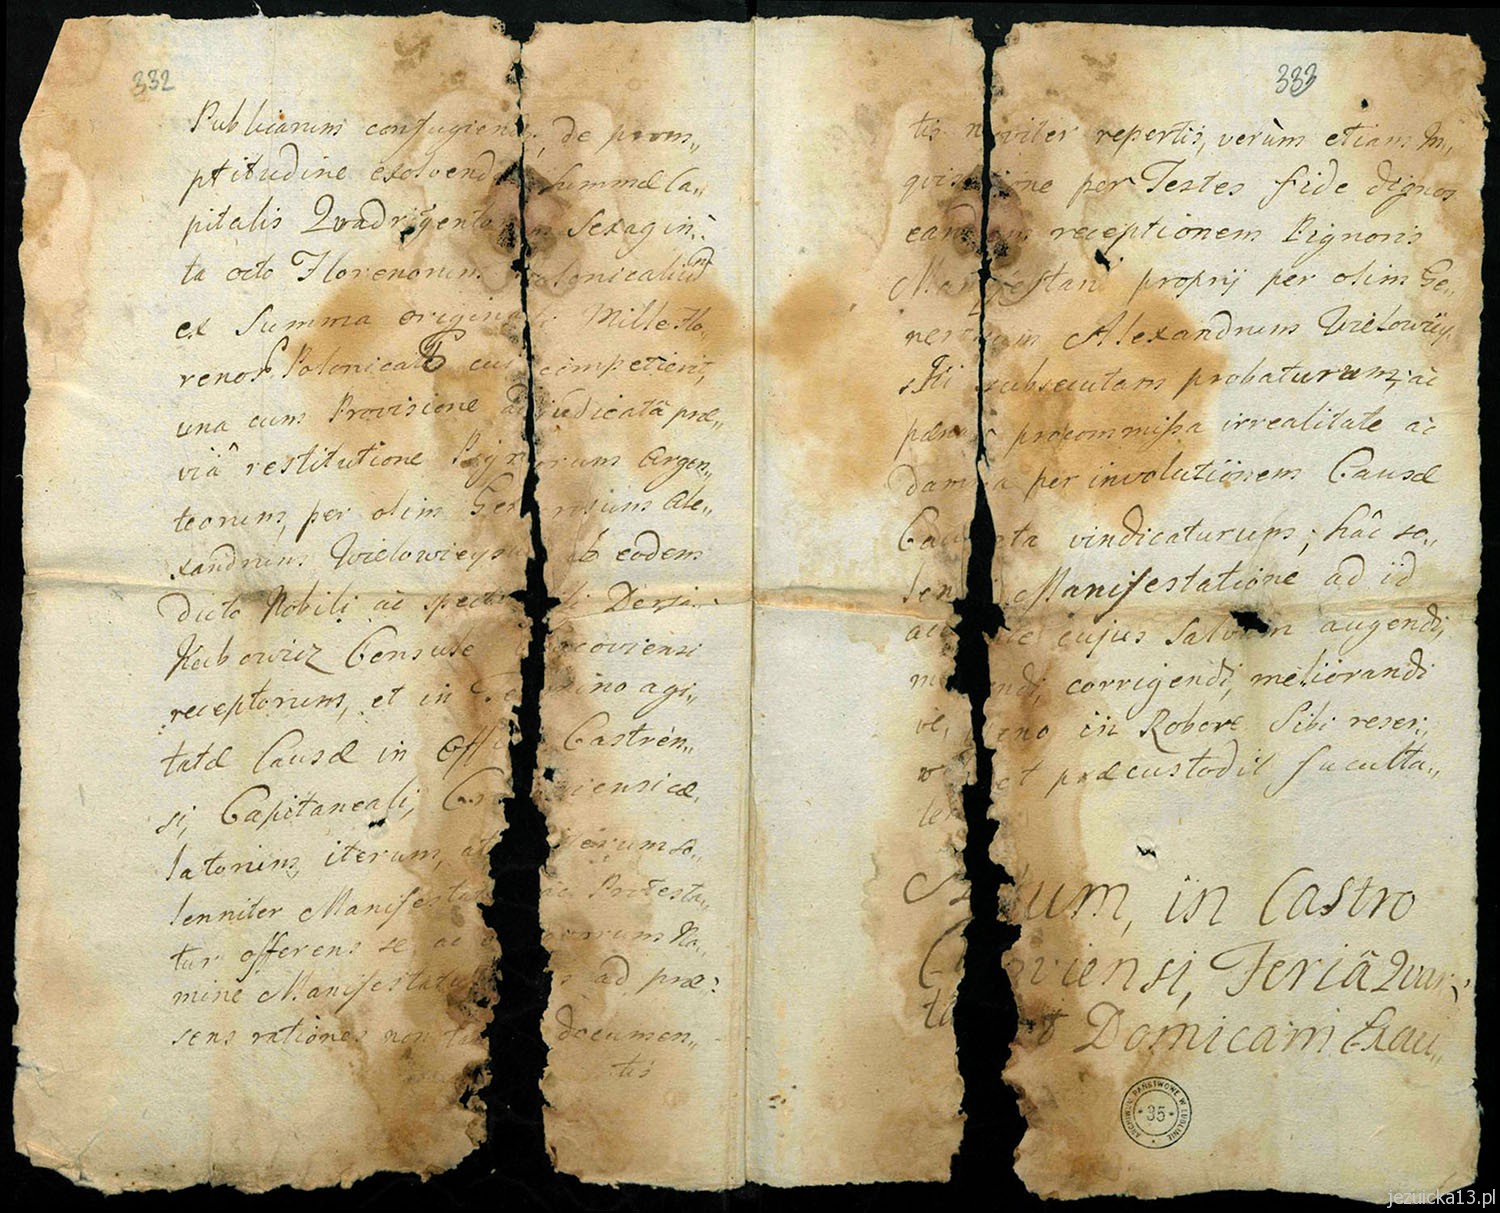 332
Publicarum confugiend , de prom„
ptitudine exolvend Summæ Ca„
pitalis Quadrigento Sexagin„
ta octo Florenorum Polonicalium
ex Summa origina Mille Flo„
renos Polonical competierit,
una cum Provisione adjudicatâ præ„
viâ restitutione Pignorum Argen„
teorum, per olim Ge rosum Ale„
xandrum Wielowieys ab eodem
dicto Nobili ac spect li Dersia„
Kubowicz Consule coviensi
receptorum, et in Termino agi„
tatæ Causæ in Offi Castren„
si, Capitaneali, C iensi cæ„
latorum, iterum, at iterum so„
lenniter Manifesta ac Protesta„
tur offerens se, ac rum No„
mine Manifestat s ad præ„
sens rationes non t documen„
tis
333
tis noviter repertis, verùm etiam In„
quisitione per Testes fide dignos
eandem receptionem Pignoris
Manifestan proprij per olim Ge„
nerosum Alexandrum Wielowiey„
ski subsecutam probaturum, ac
pæna procommissa irrealitate ac
damna per involutionem Causæ
Ca ta vindicaturum; hâc so„
len Manifestatione ad id
ac te cujus Salvam augendi,
m ndi, corrigendi, meliorandi
ve, eno in Robore Sibi reser„
v et præcustodit faculta„
tem
A tum, in Castro
C oviensi, Feriâ Quar„
ta t Domicam Exau„
ARCHIWUM PAŃSTWOWE W LUBLINIE
35
jezuicka13.pl